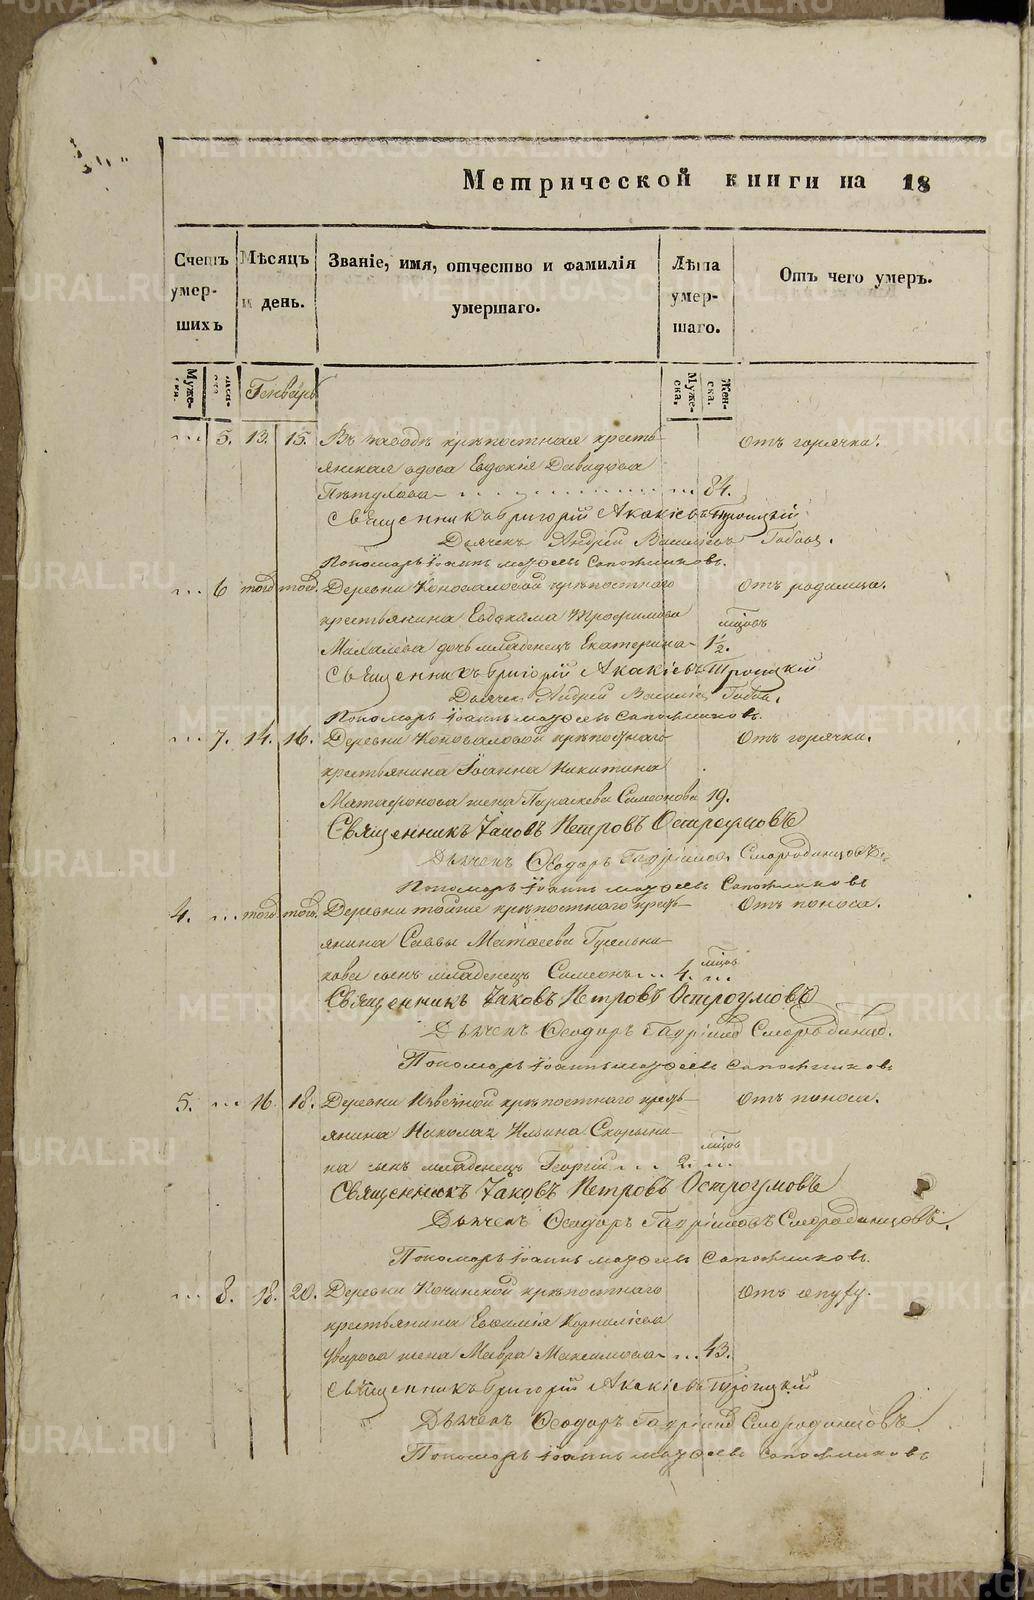 Метрической книги на 18
Счетъ умер-шихъ
Мѣсяцъ и день.
Званіе, имя, отчество и фамилія умершаго.
Лѣта умер-шаго.
Отъ чего умеръ.
Муже-ска.
Жен-ска.
Генварь
Муже-ска.
Жен-ска.
5. 13. 15. Въ заводѣ крѣпостная кресть- Отъ горячки.
янская вдова Евдокія Давидова
Пѣтухова 84.
Священникъ Григорій Акакіевъ Троицкій
Дьячекъ Андрей Василіевъ
Пономарь Іоаннъ Матѳеевъ Сапожниковъ.
6 тогож тогож. Деревни Коноваловой крѣпостнаго Отъ родимца.
крестьянина Евдокима Трофимова мѣсцовъ
Михалева дочь младенецъ Екатерина 1½.
Священникъ Григорій Акакіевъ Троицкій
Дьячекъ Андрей Василіевъ
Пономарь Іоаннъ Матѳеевъ Сапожниковъ.
7. 14. 16. Деревни Коноваловой крѣпостнаго Отъ горячки.
крестьянина Іоанна Никитина
Матафонова жена Параскева Симеонова 19.
Священникъ Іаковъ Петровъ Остроумовъ
Дьячекъ Ѳеодоръ Гавріиловъ Смородинцовъ.
Пономарь Іоаннъ Матѳеевъ Сапожниковъ
4. тогож тогож. Деревни тойже крѣпостнаго кресть- Отъ поноса.
янина Саввы Матѳеева
сынъ младенецъ Симеонъ 4. мѣсцов
Священникъ Іаковъ Петровъ Остроумовъ
Дьячекъ Ѳеодоръ Гавріиловъ Смородинцов.
Пономарь Іоаннъ Матѳеевъ Сапожниковъ
5. 16. 18. Деревни крѣпостнаго кресть- Отъ поноса.
янина Николая Ильина Скорыни-
на сынъ младенецъ Георгій 2 мѣсцов
Священникъ Іаковъ Петровъ Остроумовъ
Дьячекъ Ѳеодоръ Гавріиловъ Смородинцовъ.
Пономарь Іоаннъ Матѳеевъ Сапожниковъ.
8. 18. 20. Деревни Кочинской крѣпостнаго Отъ опуху.
крестьянина Евѳимія Корниліева
Уварова жена Мавра Максимова 43.
Священникъ Григорій Акакіевъ Троицкій
Дьячекъ Ѳеодоръ Гавріиловъ Смородинцовъ.
Пономарь Іоаннъ Матѳеевъ Сапожниковъ
METRIKI.GASO-URAL.RU